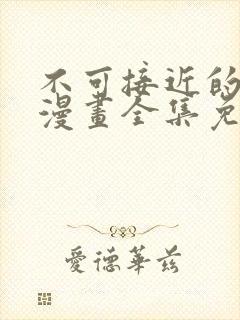 不可接近的
漫畫全集免
愛德華兹